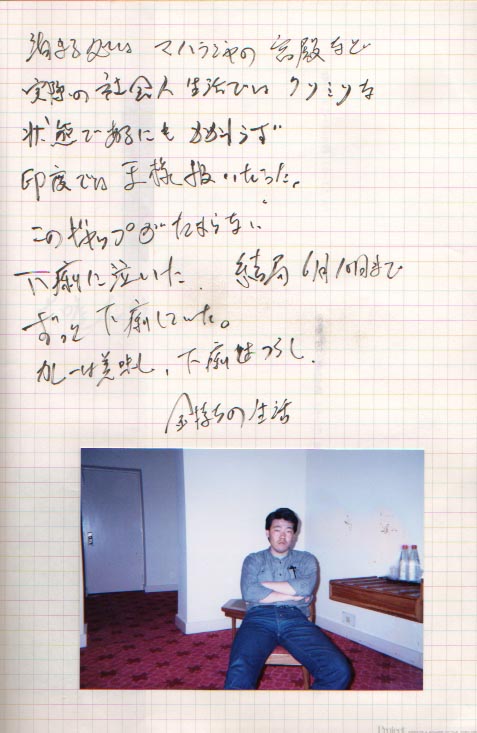 泊まる処は マハラジャの宮殿など
実際の社会人生活では クソミソな
状態であるにもかかわらず
印度では王様扱いだった。
このギャップがたまらない
下痢に泣いた. 結局 6月10日まで
ずっと 下痢していた。
カレーは美味し, 下痢はつらし.
金持ちの生活
Project